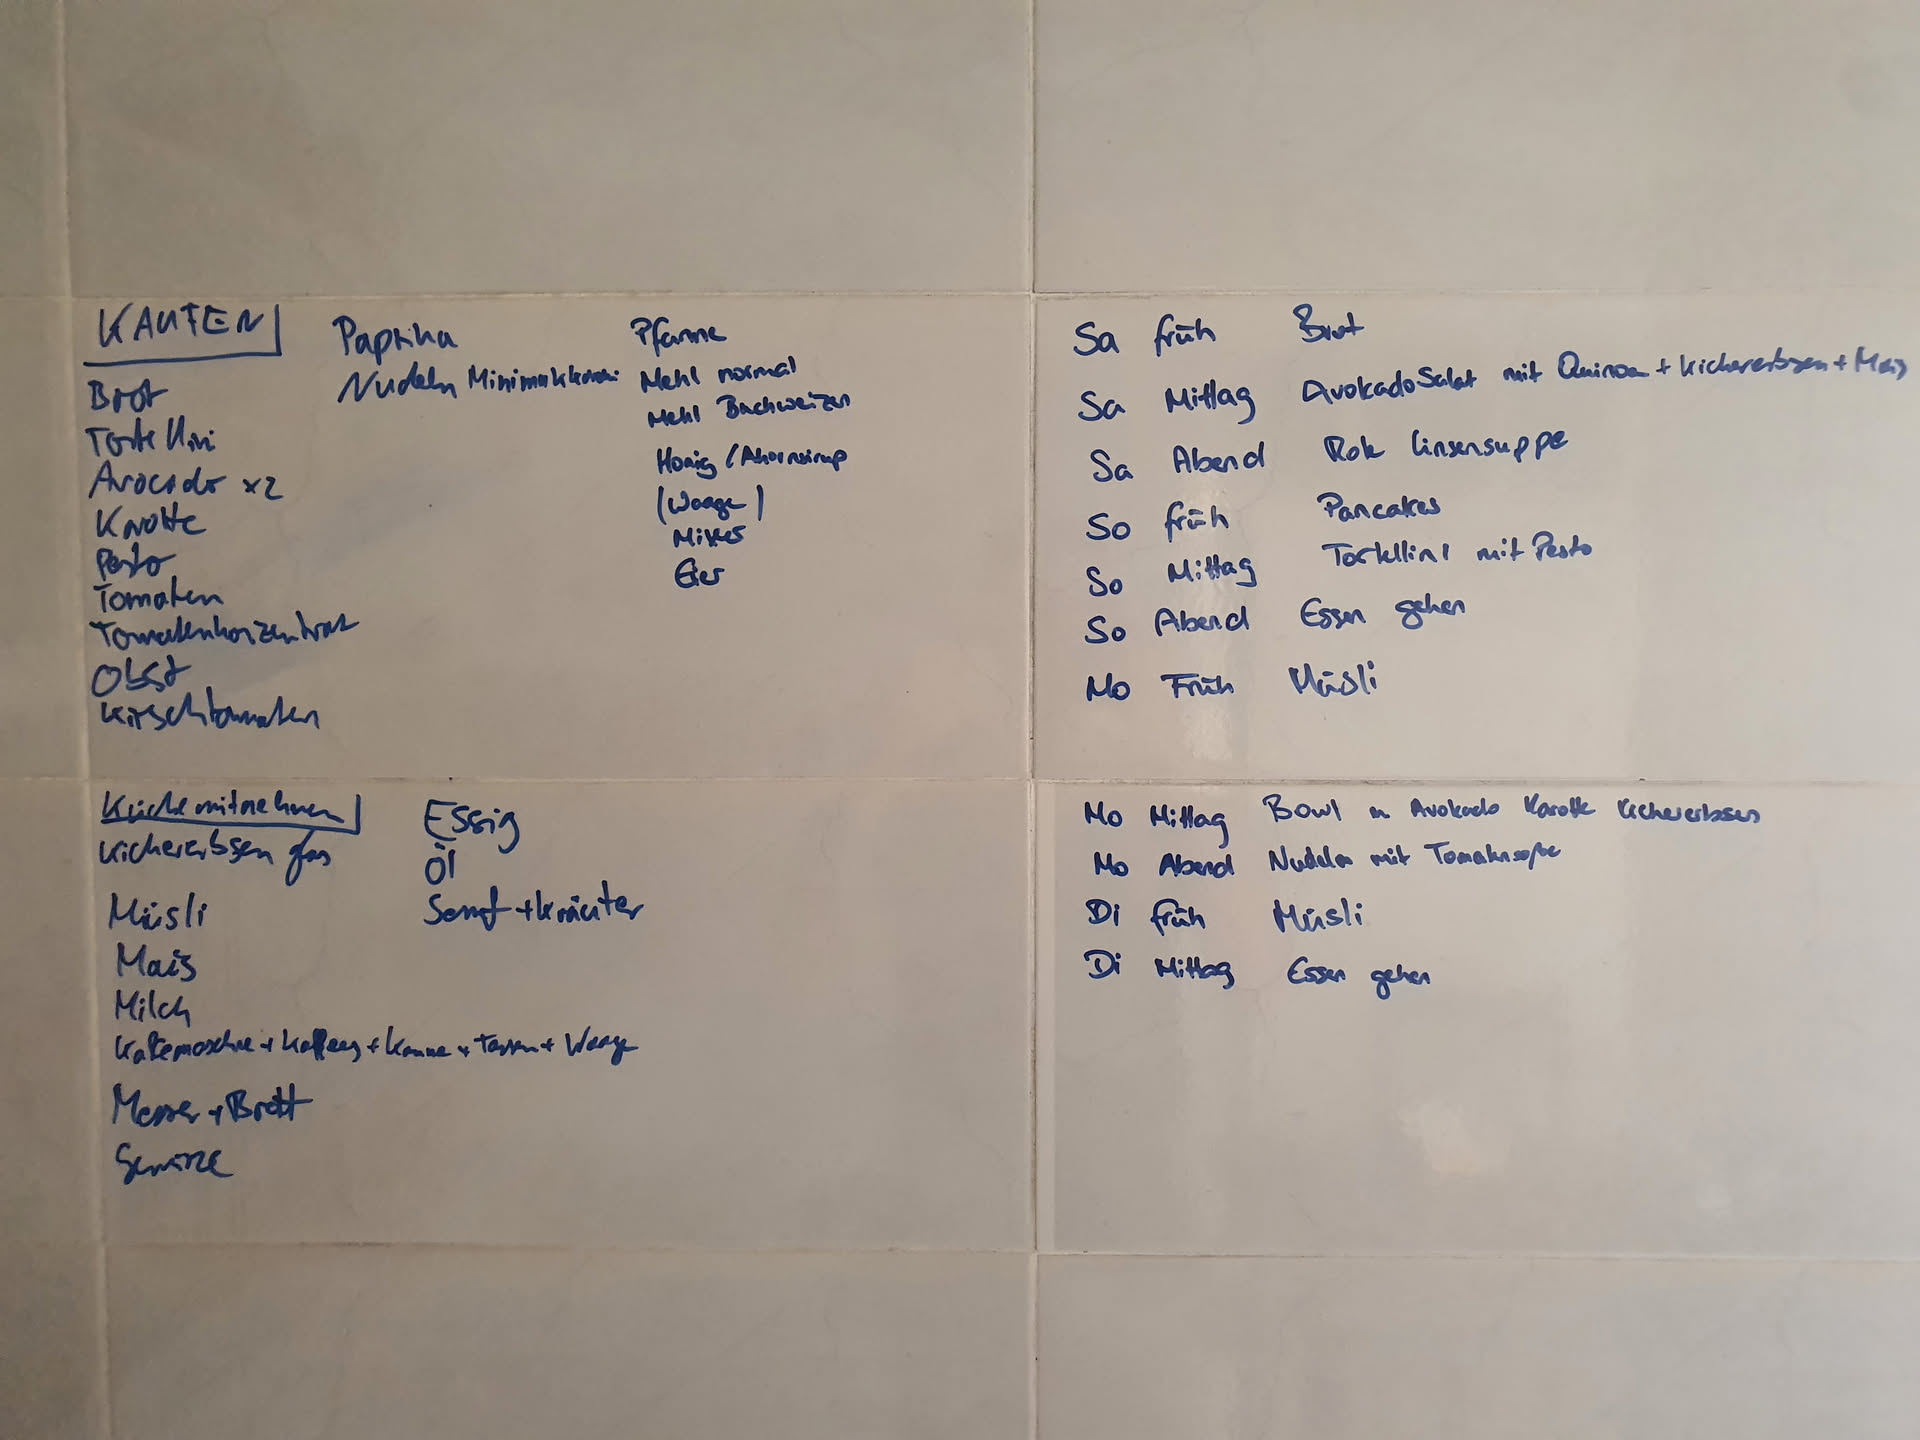 KAUFEN
Brot
Tortellini
Avocado x2
Karotte
Pesto
Tomaten
Tomatenkonzentrat
Obst
Kirschtomaten
Paprika
Nudeln Minimakkaroni
Pfanne
Mehl normal
Mehl Buchweizen
Honig / Ahornsirup
(Waage)
Mixer
Eier
Küche mitnehmen
Kichererbsen Glas
Müsli
Mais
Milch
Kaffemaschine + Kaffee + Kanne + Tassen + Waage
Messer + Brett
Gewürze
Essig
Öl
Senf + Kräuter
Sa früh Brot
Sa Mittag Avokado Salat mit Quinoa + Kichererbsen + Mais
Sa Abend Rote Linsensuppe
So früh Pancakes
So Mittag Tortellini mit Pesto
So Abend Essen gehen
Mo Früh Müsli
Mo Mittag Bowl m Avokado Karotte Kichererbsen
Mo Abend Nudeln mit Tomatensoße
Di früh Müsli
Di Mittag Essen gehen